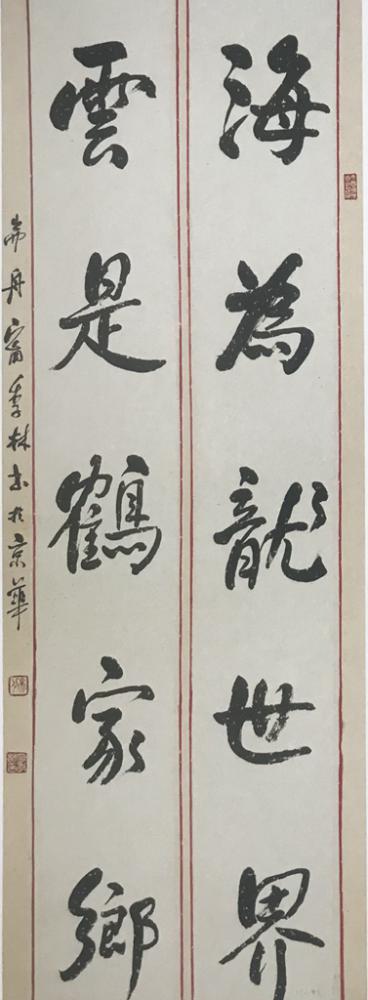 海為龍世界
雲是鶴家鄉
丹甯季林書於京華